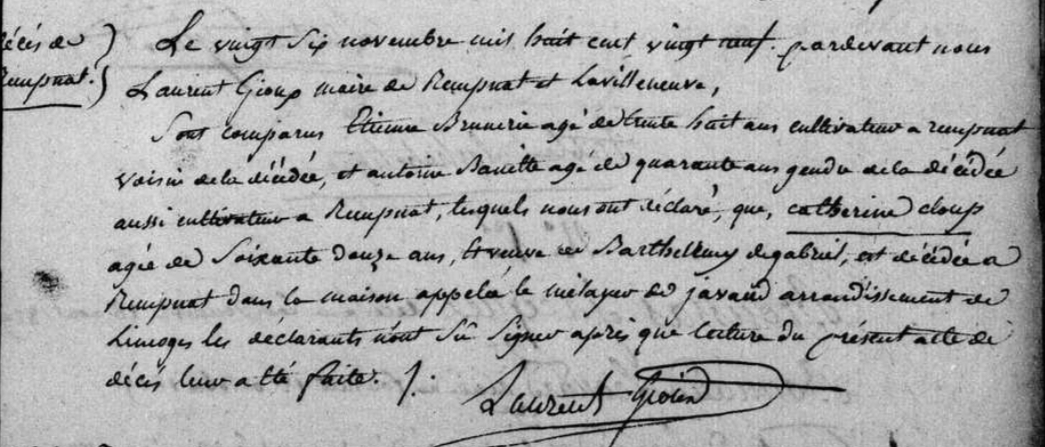 décès de
Rempnat.
Le vingt six novembre mil huit cent vingt neuf. pardevant nous
Laurent Gioux maire de Rempnat et Lavilleneuve,
Sont comparus Etienne Brunerie agé de trente huit ans cultivateur a rempnat
voisin de la décédée, et antoine agé de quarante ans gendre de la décédée
aussi cultivateur a Rempnat, lesquels nous ont déclaré, que, catherine cloup
agée de Soixante douze ans, veuve de Barthellemy degabriel, est décédée a
Rempnat dans la maison appelée le métayer de javaud arrondissement de
Limoges les déclarants n'ont Sû Signer après que lecture du présent acte de
décès leur a été faite. /.
Laurent Gioux